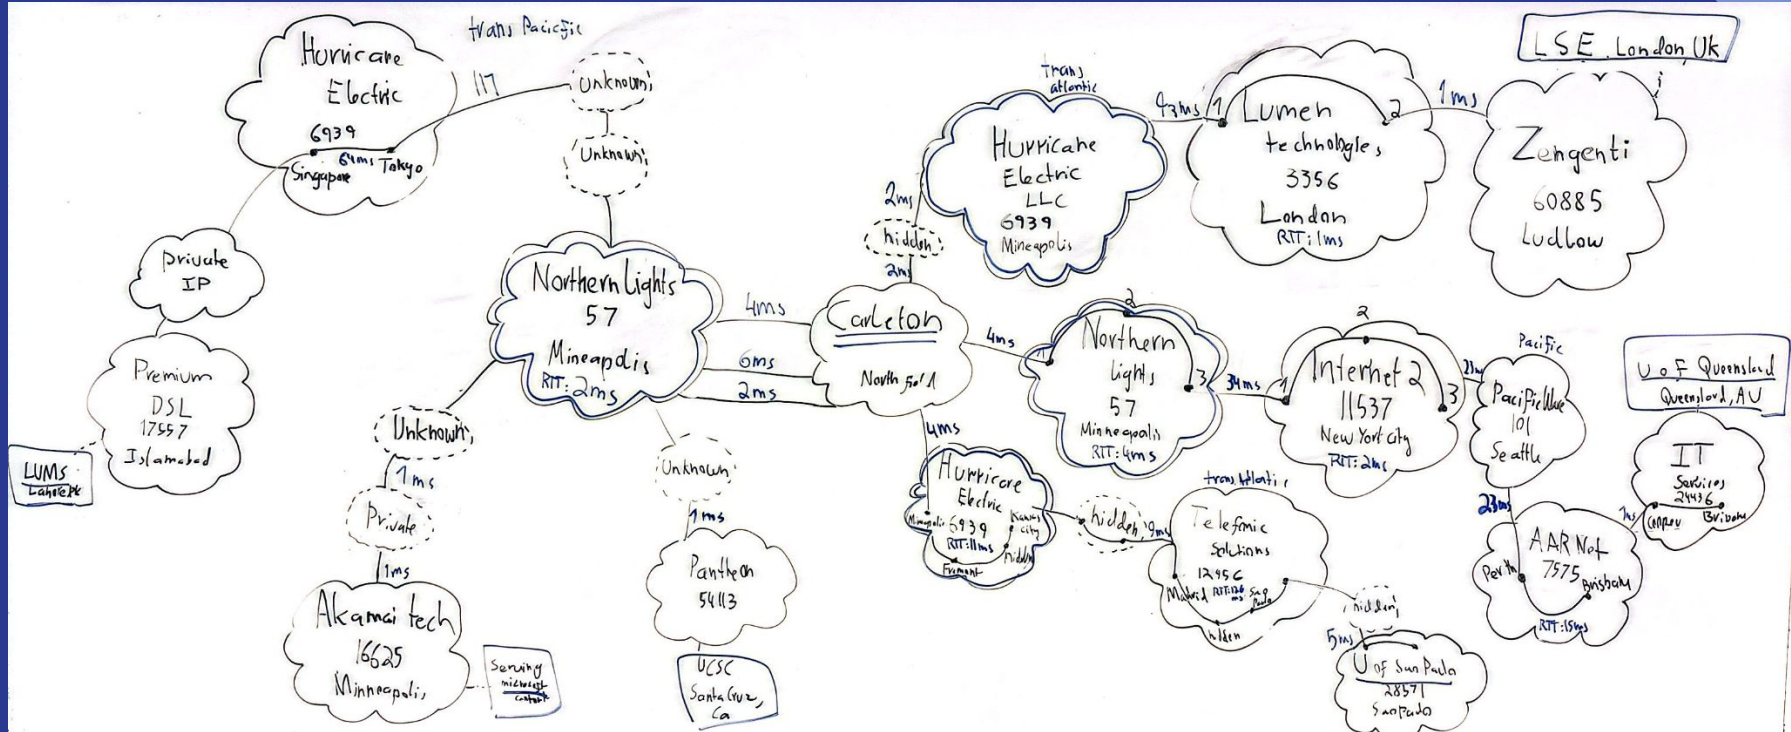 trans Pacicfic
Hurricane
Electric
6939
64ms
Singapore
Tokyo
117
Unknown
Unknown
Private
IP
Premium
DSL
17557
Islamabad
LUMS
Lahore pk
Northern Lights
57
Mineapolis
RTT: 2ms
4ms
6ms
2ms
Unknown
1ms
Private
1ms
Akamai tech
16625
Minneapolis
Serving
microsoft
content
Unknown
1ms
Pantheon
54113
UCSC
Santa Cruz,
Ca
Carleton
Northfield
2ms
hidden
2ms
trans
atlantic
Hurricane
Electric
LLC
6939
Mineapolis
1
Lumen
technologies
3356
London
RTT: 1ms
2
1ms
LSE. London, Uk
Zengenti
60885
Ludlow
4ms
1
2
3
Northern
Lights
57
Minneapolis
RTT: 4ms
34ms
1
2
3
Internet 2
11537
New York city
RTT: 2ms
Pacific
Pacific Wave
101
Seattle
23ms
AAR Net
7575
Perth
Brisbane
RTT: 15ms
U of Queensland
Queensland, AU
IT
Services
24436
4ms
Hurricane
Electric
6939
Mineapolis
Kansas
city
RTT: 11ms
Fremont
hidden
hidden
9ms
trans Atlantic
Telefonic
Solutions
12956
Madrid
Sao
Paulo
hidden
hidden
5ms
U of San Paulo
28571
San Paulo